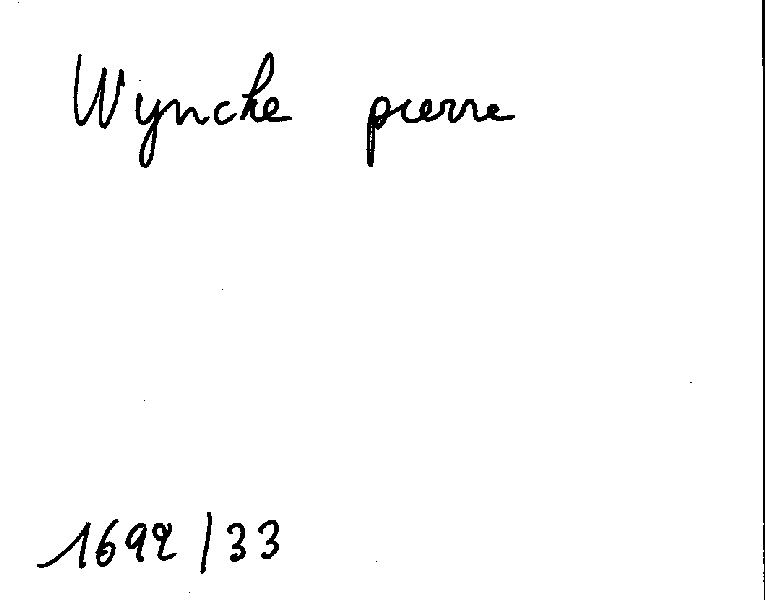 Wyncke pierre
1692/33